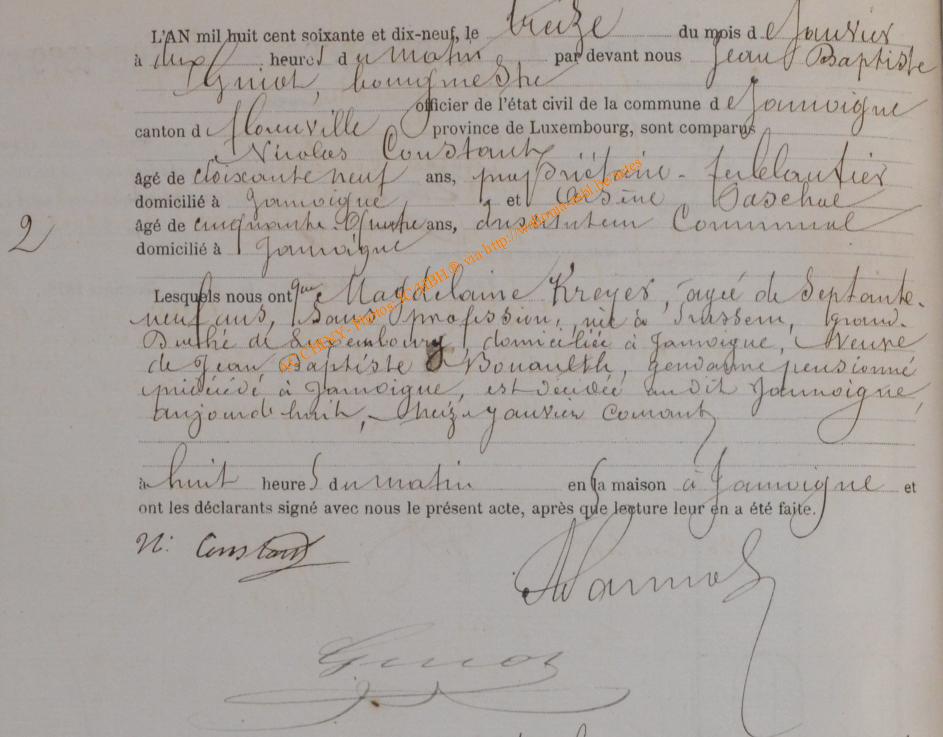 L'AN mil huit cent soixante et dix-neuf, le treize du mois de Janvier
à dix heures du matin par devant nous Jean Baptiste
Guiot, bourgmestre
officier de l'état civil de la commune de Jamoigne
canton de Florenville province de Luxembourg, sont comparus
Nicolas Constant
âgé de soixante neuf ans, propriétaire-
domicilié à Jamoigne et Arsène Paschal
2 âgé de cinquante-quatre ans, instituteur Communal
domicilié à Jamoigne
Lesquels nous ont que Magdelaine Kreyer, agée de Septante-
neuf ans, Sans profession, née à Trassem, Grand-
Duché de Luxembourg, domiciliée à Jamoigne, Veuve
de Jean Baptiste Bonaulth, gendarme pensionné
prédécédé à Jamoigne, est décédée audit Jamoigne,
aujourdehuit, treize janvier Courant
à huit heures du matin en sa maison à Jamoigne et
ont les déclarants signé avec nous le présent acte, après que lecture leur en a été faite.
N: Constant
Guiot